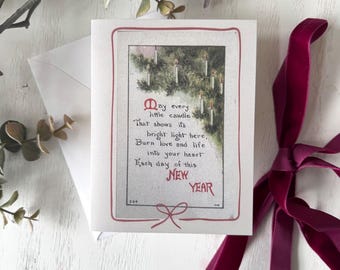 May every
little candle
That shows its
bright light here,
Burn love and life
into your heart
Each day of this
NEW
YEAR